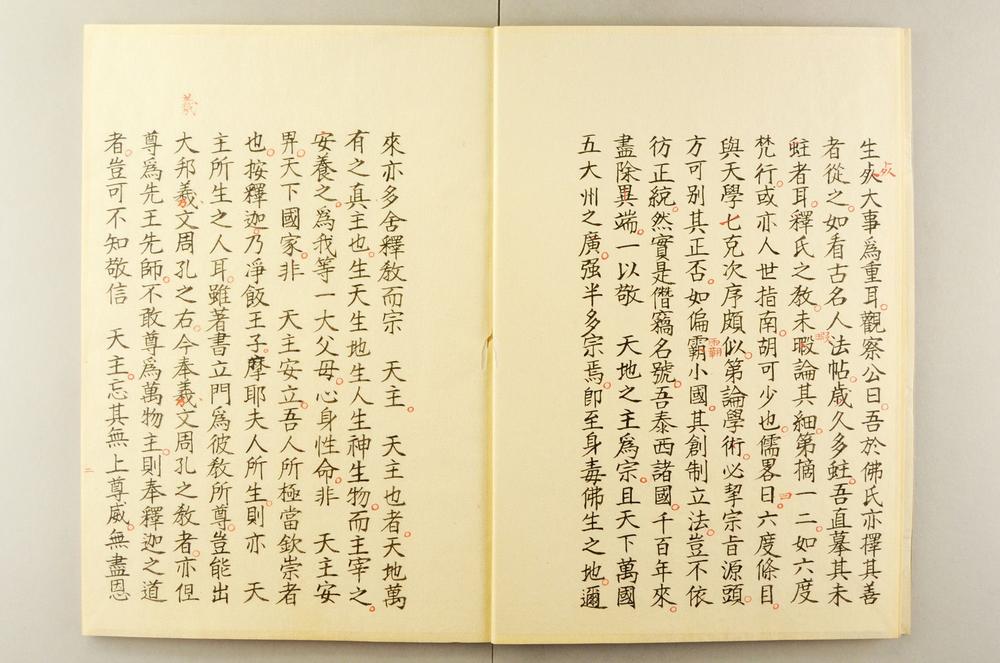 生死大事爲重耳觀察公曰吾於佛氏亦擇其善
者從之如看古名人法帖歲久多蛀吾直摹其未
蛀者耳釋氏之教未暇論其細第摘一二如六度
梵行或亦人世指南胡可少也儒畧曰六度條目
與天學七克次序頗似第論學術必挈宗旨源頭
方可别其正否如偏霸小國其創制立法豈不依
彷正統然實是僭竊名號吾泰西諸國千百年來
盡除異端一以敬 天地之主爲宗且天下萬國
五大州之廣强半多宗焉卽至身毒佛生之地邇
來亦多舍釋教而宗 天主 天主也者天地萬
有之真主也生天生地生人生神生物而主宰之
安養之爲我等一大父母心身性命非 天主安
畀天下國家非 天主安立吾人所極當欽崇者
也按釋迦乃淨飯王子摩耶夫人所生則亦 天
主所生之人耳雖著書立門爲彼教所尊豈能出
大邦羲文周孔之右今奉羲文周孔之教者亦但
尊爲先王先師不敢尊爲萬物主則奉釋迦之道
者豈可不知敬信 天主忘其無上尊威無盡恩
羲
三